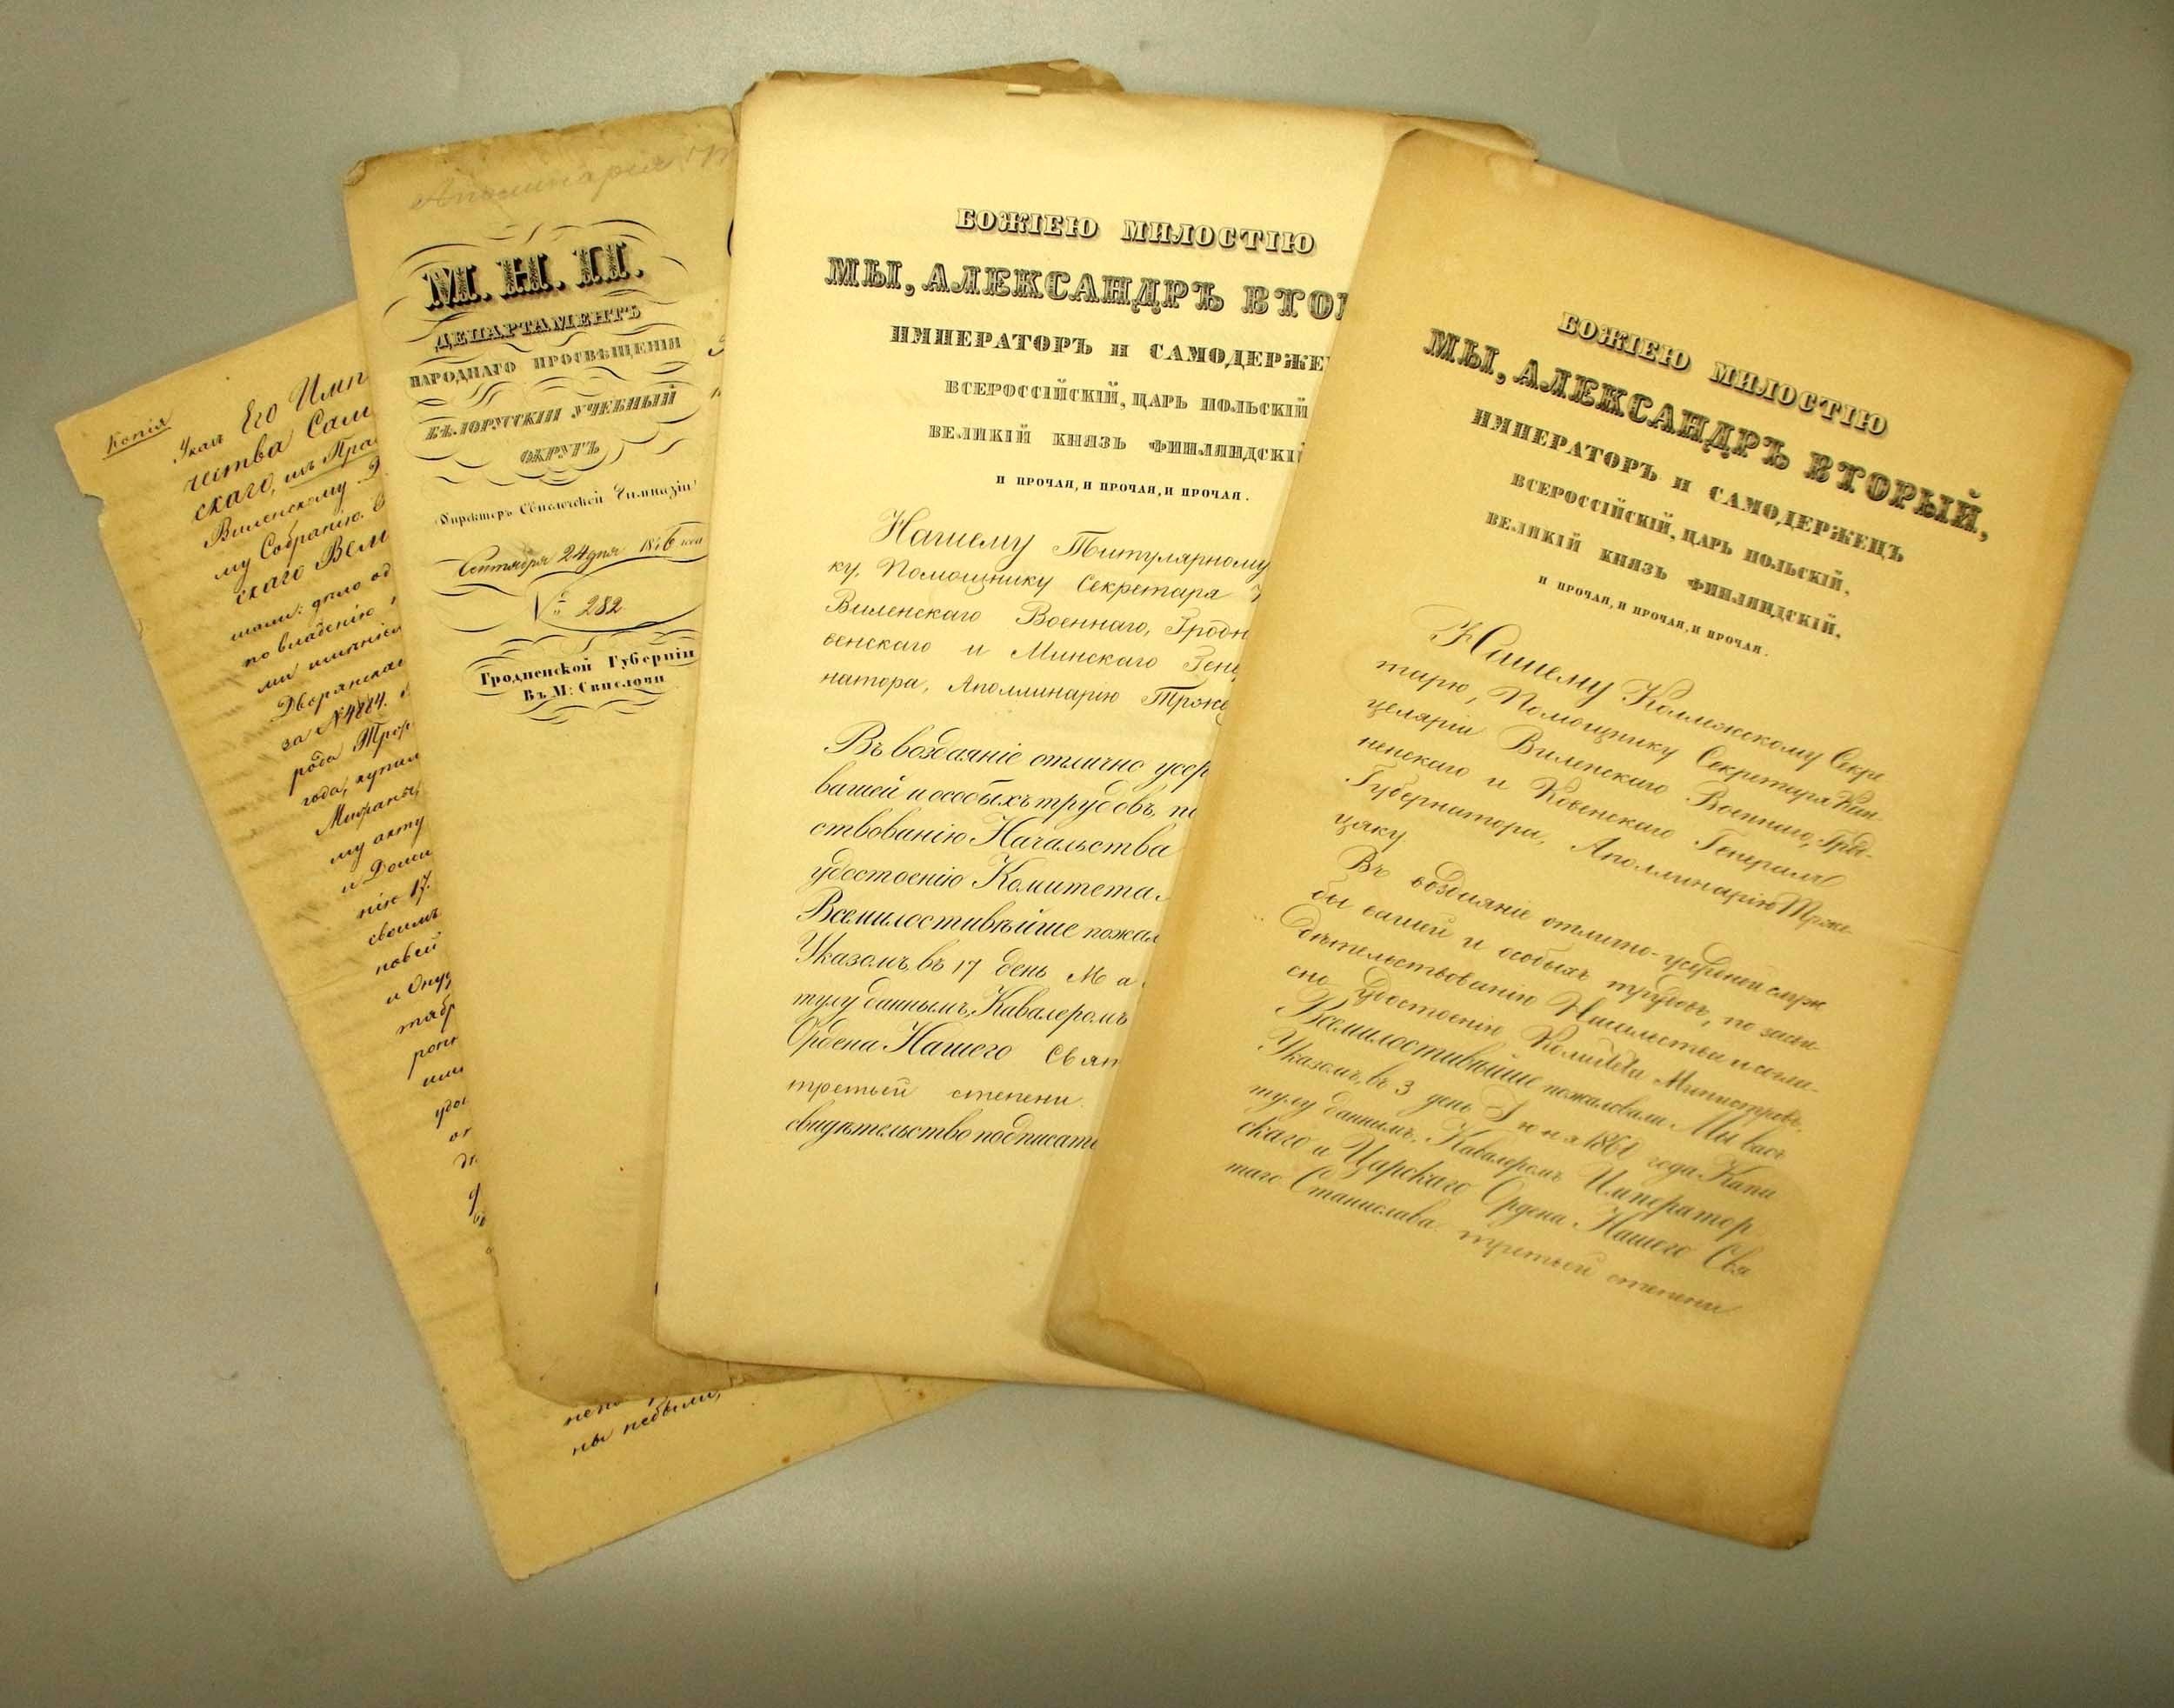 Копія
Указъ Его Имп
чества Сам
скаго, изъ Пра
Виленскому Д
му Собранію.
скаго Вели
шали: дѣло од
по владѣнію
ми имѣніем
Дворянска
за №4884.
рода
года, купил
му акту
и Доми
нію 17.
своимъ
новей
тябр
ны небыли,
Аполинарія
М. Н. П.
ДЕПАРТАМЕНТЪ
НАРОДНАГО ПРОСВѢЩЕНІЯ
БѢЛОРУССКІЙ УЧЕБНЫЙ
ОКРУГЪ
Директоръ Свислочской Гимназіи
Сентября 24 дня 1846 года
№ 282
Гродненской Губерніи
Въ М: Свислочи
БОЖІЕЮ МИЛОСТІЮ
МЫ, АЛЕКСАНДРЪ ВТОР
ИМПЕРАТОРЪ и САМОДЕРЖЕ
ВСЕРОССІЙСКІЙ, ЦАРЬ ПОЛЬСКІЙ
ВЕЛИКІЙ КНЯЗЬ ФИНЛЯНДСКІЙ
И ПРОЧАЯ, И ПРОЧАЯ, И ПРОЧАЯ.
Нашему Титулярному
ку, Помощнику Секретаря
Виленскаго Военнаго, Гродн
венскаго и Минскаго Гене
натора, Аполлинарію Трже
Въ воздаяніе отлично усер
вашей и особыхъ трудовъ, по
ствованію Начальства
удостоенію Комитета
Всемилостивѣйше пожал
Указомъ, въ 17 день Ма
тулу даннымъ, Кавалеромъ
Ордена Нашего Свят
третьей степени
свидѣтельство подписать
БОЖІЕЮ МИЛОСТІЮ
МЫ, АЛЕКСАНДРЪ ВТОРЫЙ,
ИМПЕРАТОРЪ И САМОДЕРЖЕЦЪ
ВСЕРОССІЙСКІЙ, ЦАРЬ ПОЛЬСКІЙ,
ВЕЛИКІЙ КНЯЗЬ ФИНЛЯНДСКІЙ,
И ПРОЧАЯ, И ПРОЧАЯ, И ПРОЧАЯ.
Нашему Коллежскому Секре
тарю, Помощнику Секретаря Кан
целяріи Виленскаго Военнаго, Грод-
ненскаго и Ковенскаго Генералъ
Губернатора, Аполлинарію Трже
цяку
Въ воздаяніе отлично-усердной служ
бы вашей и особыхъ трудовъ, по засви
дѣтельствованію Начальства и согла-
сно удостоенію Комитета Министровъ,
Всемилостивѣйше пожаловали Мы васъ
Указомъ, въ 3 день Іюня 1860 года Капи
тулу даннымъ, Кавалеромъ Император
скаго и Царскаго Ордена Нашего Свя
таго Станислава третьей степени